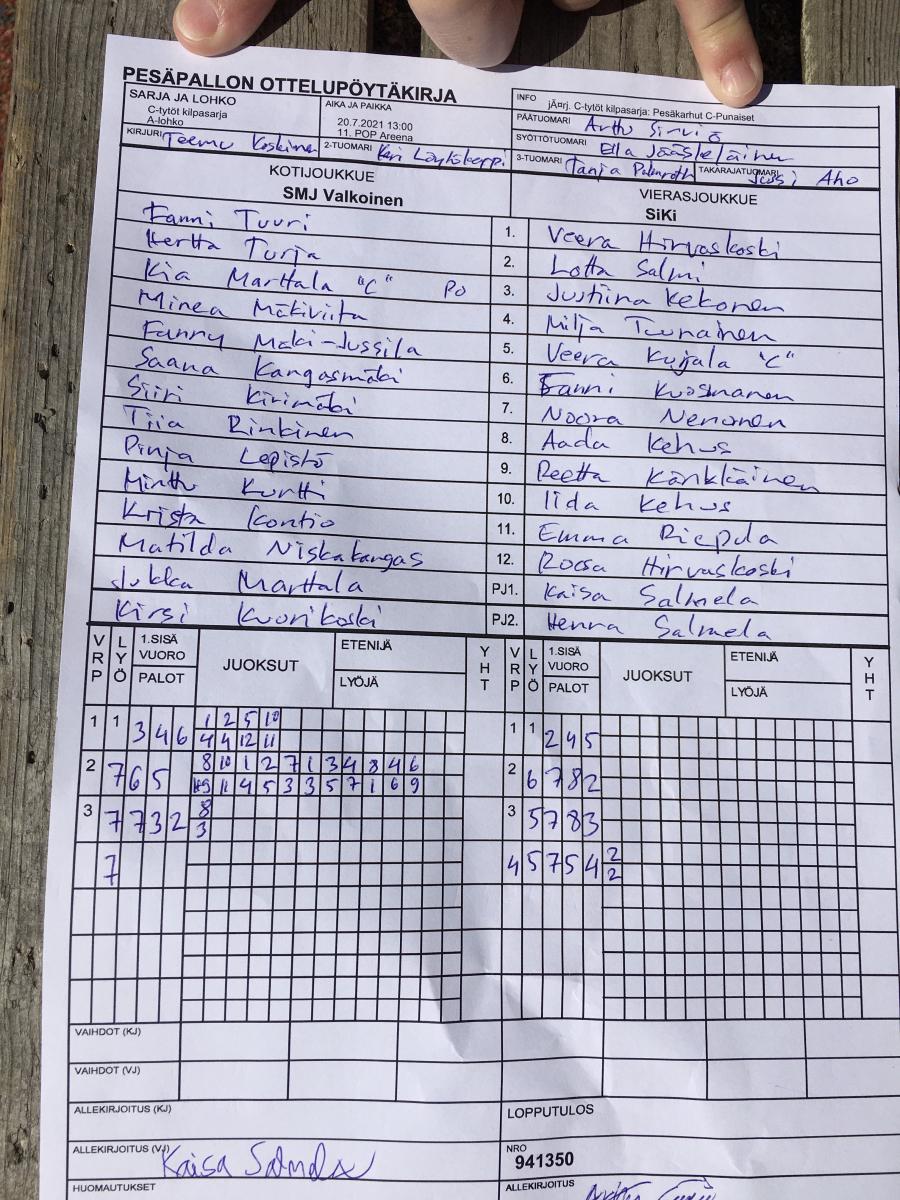 PESÄPALLON OTTELUPÖYTÄKIRJA
SARJA JA LOHKO
C-tytöt kilpasarja
A-lohko
AIKA JA PAIKKA
20.7.2021 13:00
11. POP Areena
INFO
jÄ¤rj. C-tytöt kilpasarja: Pesäkarhut C-Punaiset
PÄÄTUOMARI Arttu Sirviö
SYÖTTÖTUOMARI Ella Jääskeläinen
KIRJURI Teemu Koskinen
2-TUOMARI
3-TUOMARI Tanja
TAKARAJATUOMARI Jussi Aho
KOTIJOUKKUE
SMJ Valkoinen
VIERASJOUKKUE
SiKi
Fanni Tuuri 1. Veera Hirvaskoski
Hertta Turja 2. Lotta Salmi
Kia Marttala "C" PO 3. Justiina Kekonen
Minea Mäkiviita 4. Milja Tuunainen
Fanny Mäki-Jussila 5. Veera Kujala "C"
Saana Kangasmäki 6. Fanni Kuosmanen
Siiri Kirimäki 7. Noora Nenonen
Tiia Rinkinen 8. Aada Kehus
Pinja Lepistö 9. Reetta Känkkäinen
Minttu Kurtti 10. Iida Kehus
Krista Kontio 11. Emma Riepula
Matilda Niskakangas 12. Roosa Hirvaskoski
Jukka Marttala PJ1. Kaisa Salmela
Kirsi Kuorikoski PJ2. Henna Salmela
VRP LYÖ 1.SISÄ VUORO PALOT JUOKSUT ETENIJÄ LYÖJÄ YHT VRP LYÖ 1.SISÄ VUORO PALOT JUOKSUT ETENIJÄ LYÖJÄ YHT
1 1 3 4 6 1 2 5 10 1 1 2 4 5
4 4 12 11
2 7 6 5 8 10 1 2 7 1 3 4 8 4 6 2 6 7 8 2
11 4 5 3 3 5 7 1 6 9
3 7 7 3 2 8 3 5 7 8 3
3
7 4 5 7 5 4 2
2
VAIHDOT (KJ)
VAIHDOT (VJ)
ALLEKIRJOITUS (KJ)
LOPPUTULOS
ALLEKIRJOITUS (VJ) Kaisa Salmela
NRO
941350
HUOMAUTUKSET
ALLEKIRJOITUS